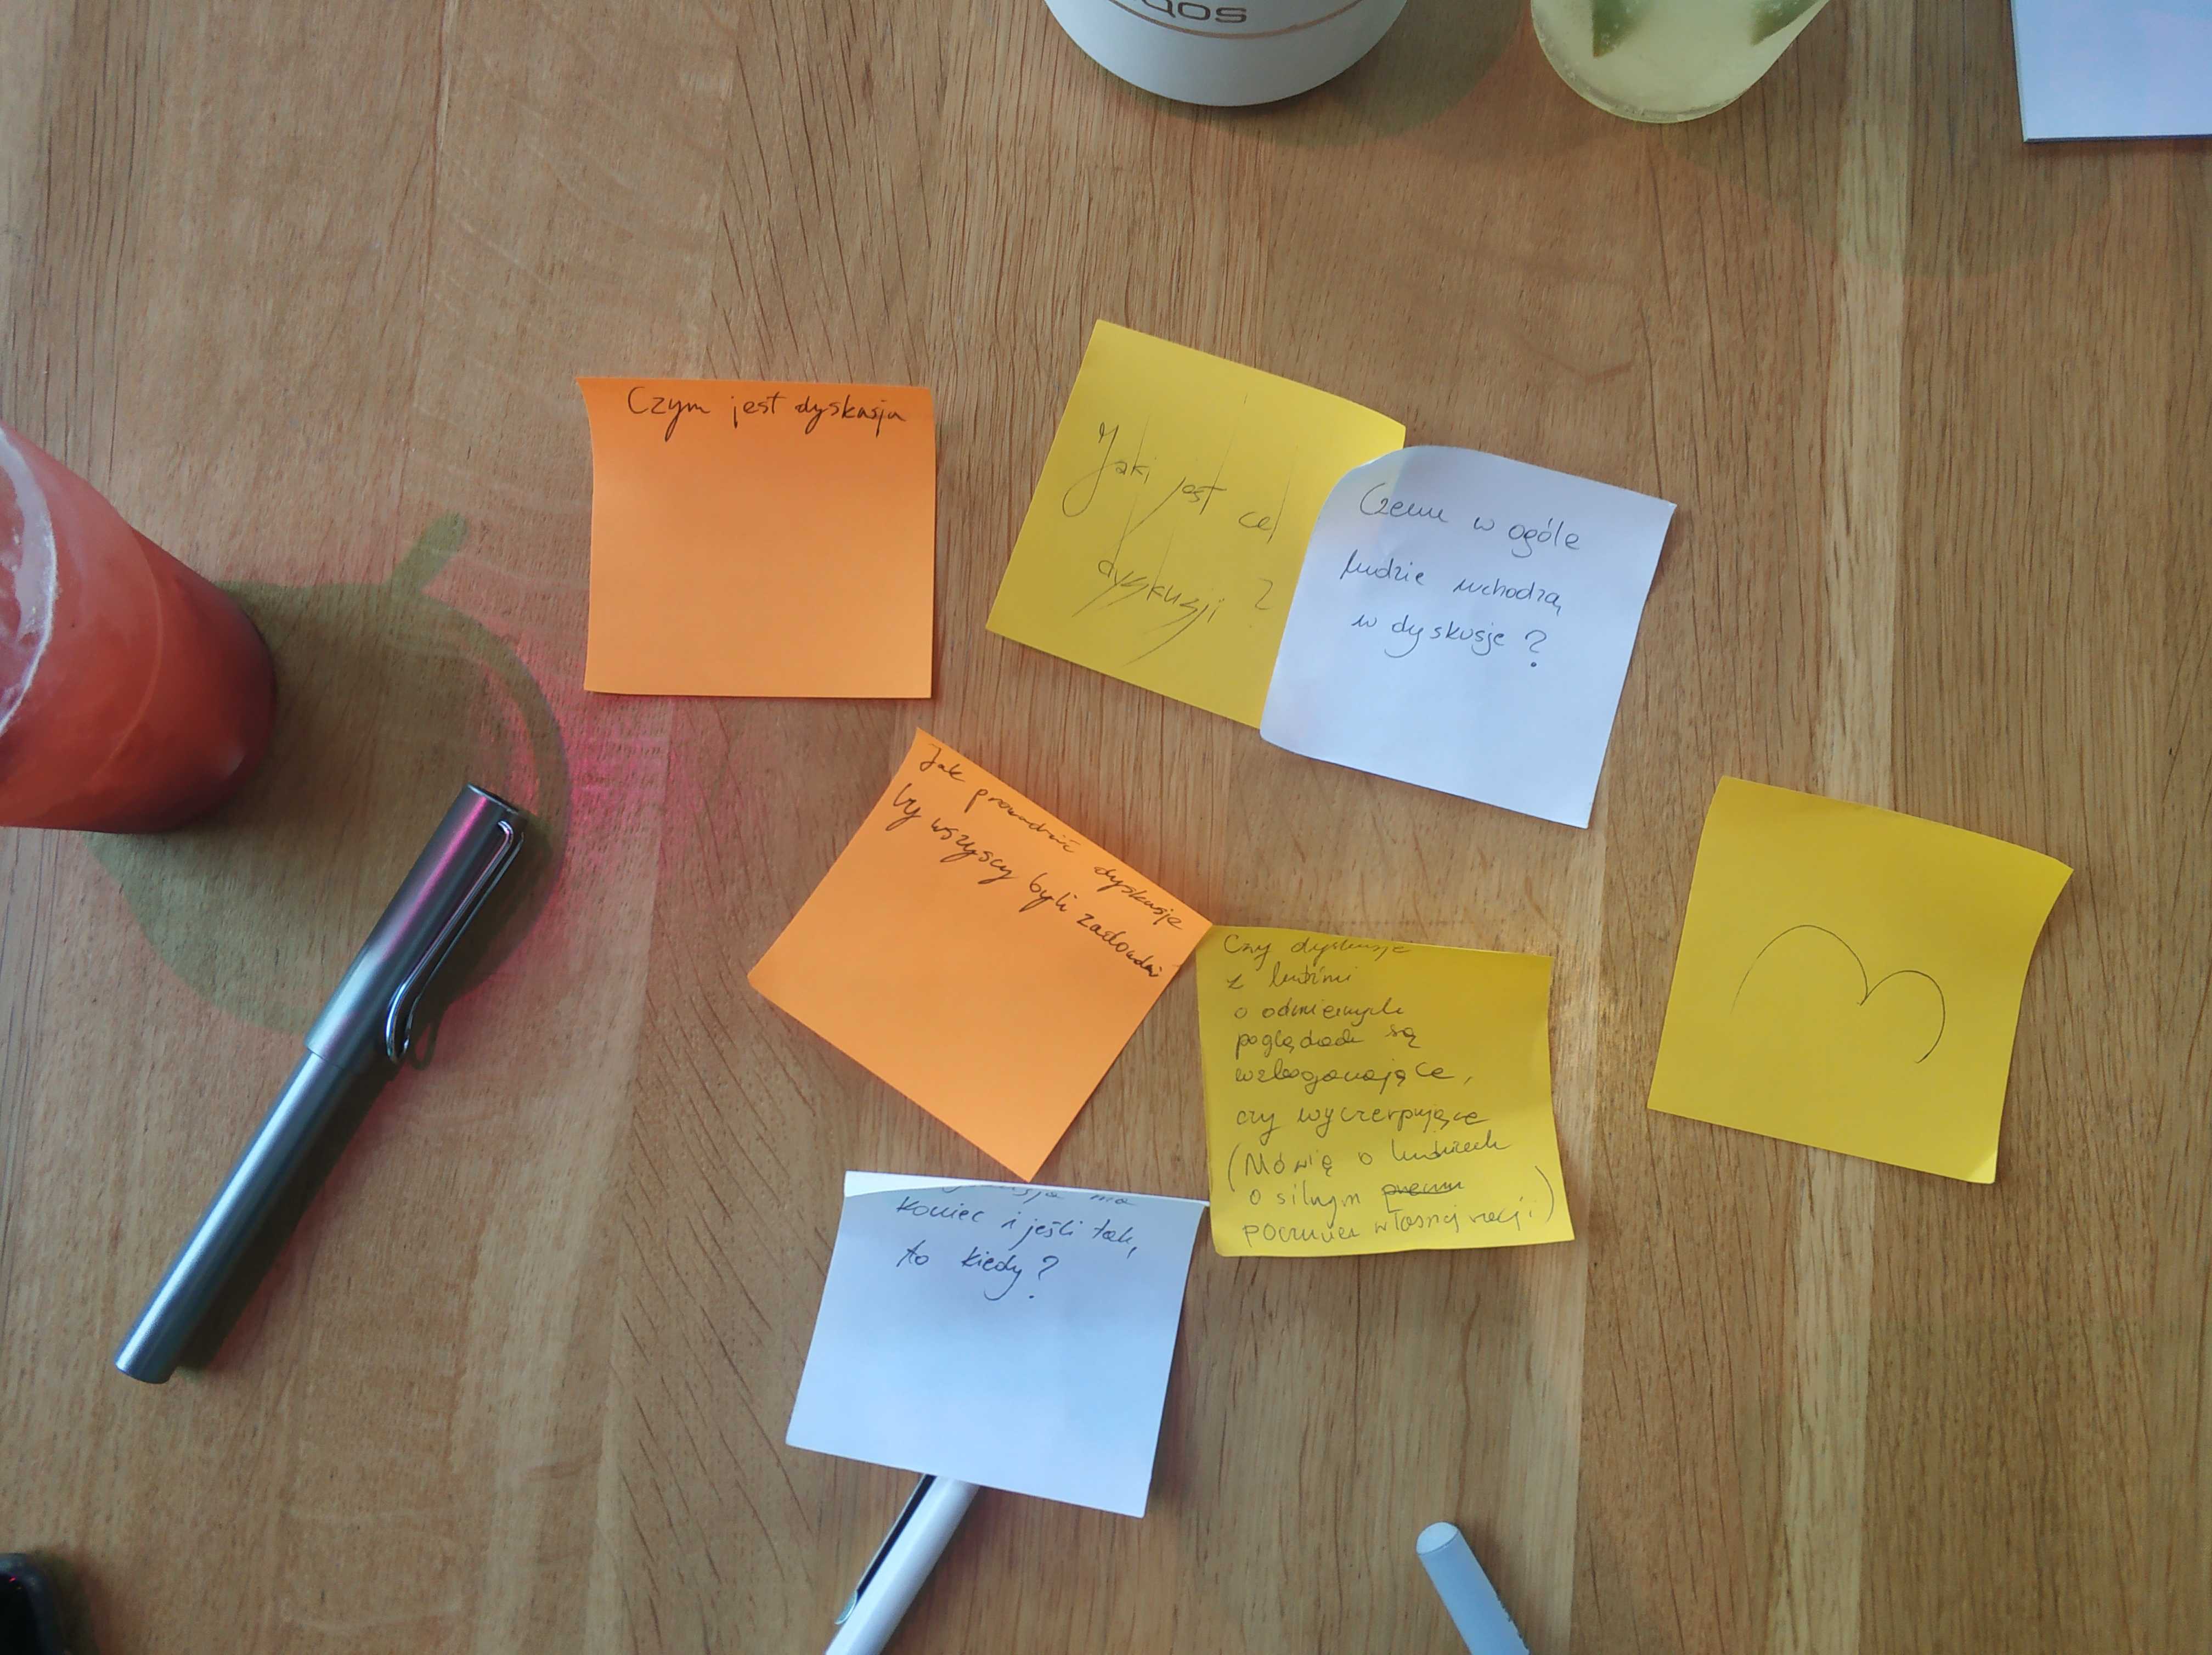 Czym jest dyskusja
Jaki jest cel
dyskusji ?
Czemu w ogóle
ludzie wchodzą
w dyskusje ?
Jak prowadzić dyskusje
by wszyscy byli
Czy dyskusje
z ludźmi
o odmiennych
poglądach są
wzbogacające,
czy wyczerpujące
(Mówię o ludziach
o silnym
poczuciu własnej racji)
ma
koniec i jeśli tak,
to kiedy?